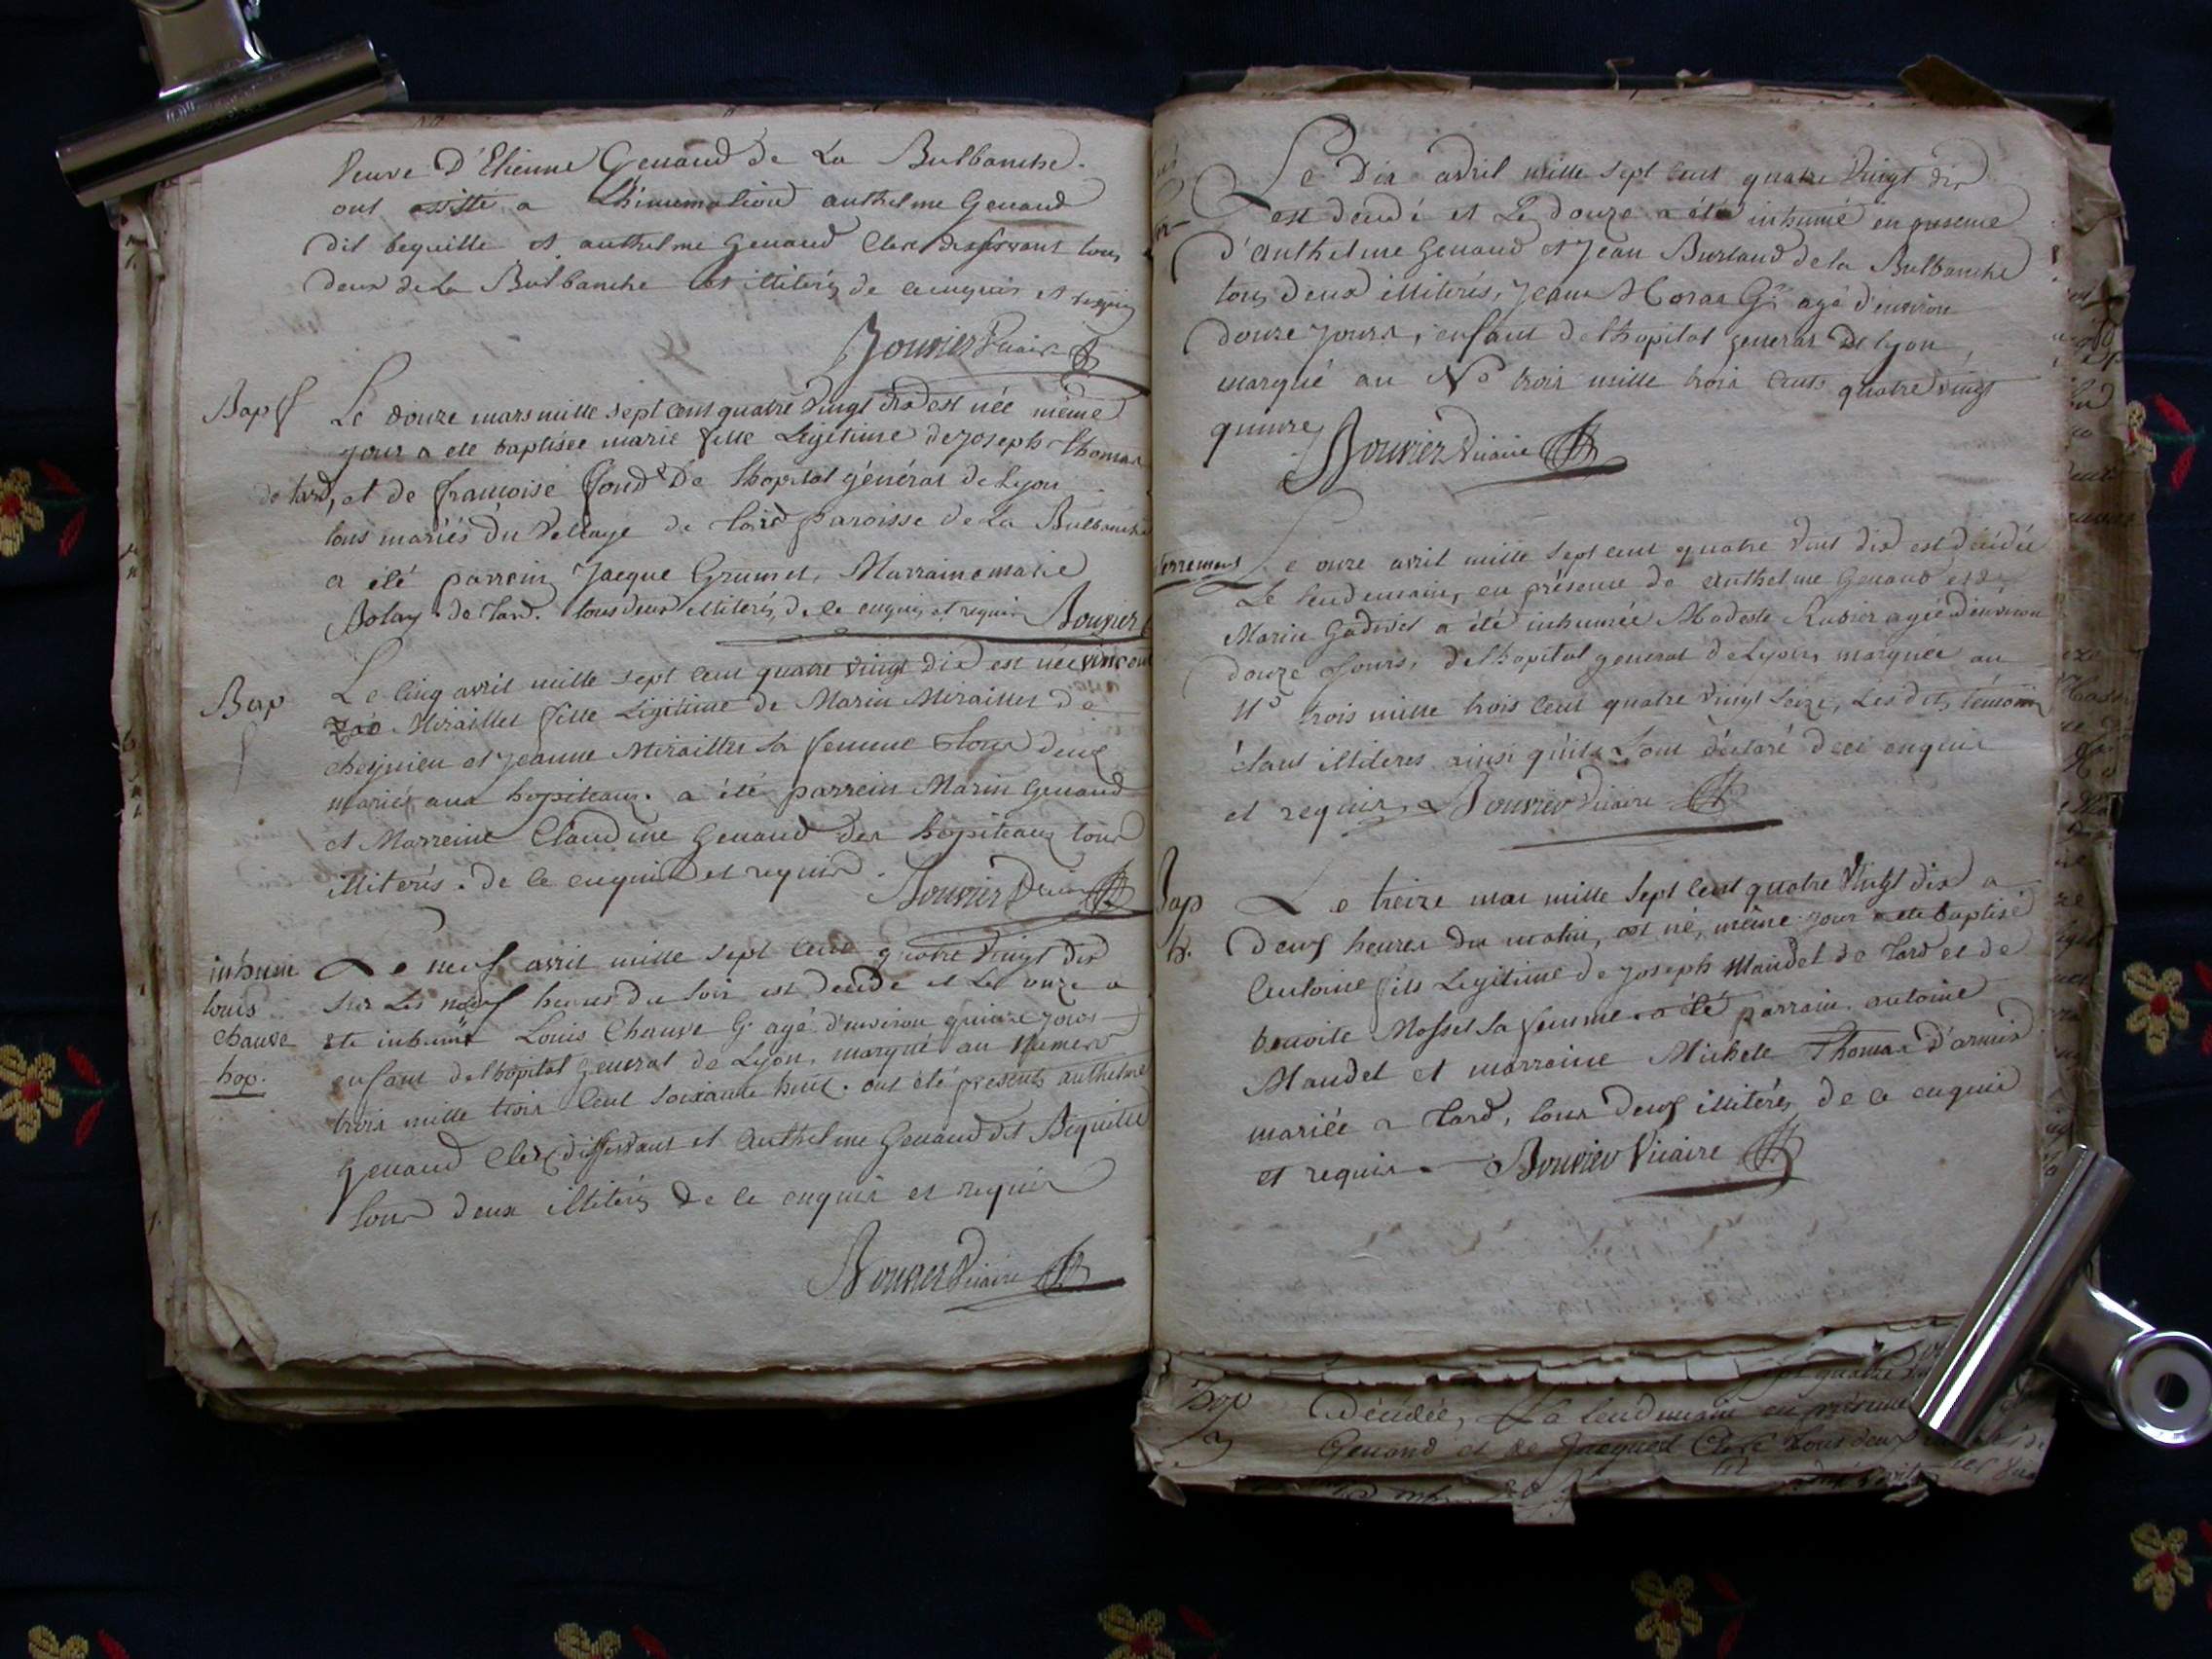 Veuve D'Etienne Genaud de La Bulbanche.
ont assisté a L'hinumation anthelme Genaud
dit bequille et anthelme Genaud Clerc desservant tous
deux de La Bulbanche illiterés de ce enquis et requis
Bouvier Vicaire
Bap f Le douze mars mille sept cent quatre vingt dix est née même
jour a eté baptisée marie fille Legitime de joseph thomas
de tard, et de francoise fond De lhopital général de Lyon
tous mariés du Village de tard paroisse de La Bulbanche
a été parrein Jacque Grumet, Marraine marie
Bolay de tard. tous deux illiterés de ce enquis et requis Bouvier
Bap Le cinq avril mille sept cent quatre vingt dix est née
Miraillet fille Légitime de Marin Miraillet de
cheynieu et jeanne Miraillet sa femme tous deux
mariés aux hopiteaux. a été parrein Marin Genaud
et Marreine Claudine Genaud des hopiteaux tous
illiterés. de ce enquis et requis. Bouvier Vicaire
inhum Le neuf avril mille sept cent quatre vingt dix
louis sur Les neuf heures du soir est decede et Le onze a
chauve ete inhumé Louis Chauve G. agé d'environ quinze jours
hop. enfant de lhopital general de Lyon, marqué au numero
trois mille trois cent soixante huit. ont été presents anthelme
genaud Clerc desservant et anthelme Genaud dit Bequille
tous deux illiterés de ce enquis et requis
Bouvier Vicaire
Le Dix avril mille sept cent quatre vingt dix
est decedé et Le douze a été inhumé en presence
d'Anthelme Genaud et Jean Burtaud de la Bulbanche
tous deux illiterés, Jean Horas G. agé d'environ
douze jours, enfant de lhopital general de lyon,
marqué au No trois mille trois cents quatre vingt
quinze Bouvier Vicaire
Le onze avril mille sept cent quatre vint dix est décédée
Le lendemain, en présence de Anthelme Genaud et de
Marin Gadivet a été inhumée Modeste Rubier agée d'environ
douze jours, de lhopital general de Lyon, marquée au
No trois mille trois cent quatre vingt seize, Les dits témoins
étant illiteres ainsi qu'ils L'ont déclaré de ce enquis
et requis. Bouvier Vicaire
Bap Le treize mai mille sept cent quatre vingt dix a
h. deux heures du matin, est né, même jour a ete baptisé
Antoine fils Legitime de joseph Maudet de tard et de
benoite Mosset sa femme. a été parrain antoine
Maudet et marraine Michele Thomas d'armix
mariée a tard, tous deux illitérés de ce enquis
et requis. Bouvier Vicaire
hop Décédée, Le lendemain en présence
Genaud et de Jacques Clerc tous deux